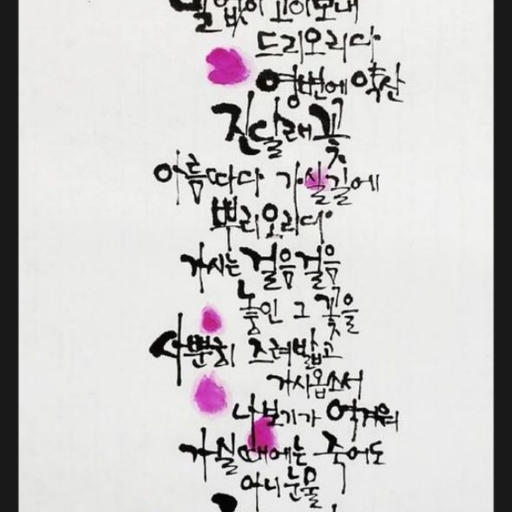 말없이 고이보내
드리오리다
영변에 약산
진달래꽃
아름따다 가실길에
뿌리오리다
가시는 걸음걸음
놓인 그 꽃을
사뿐히 즈려밟고
가시옵소서
나보기가 역겨워
가실때에는 죽어도
아니눈물